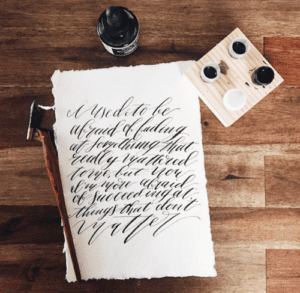 I used to be
afraid of failing
at something that
really mattered
to me, but now
I'm more afraid
of succeeding at
things that don't
matter